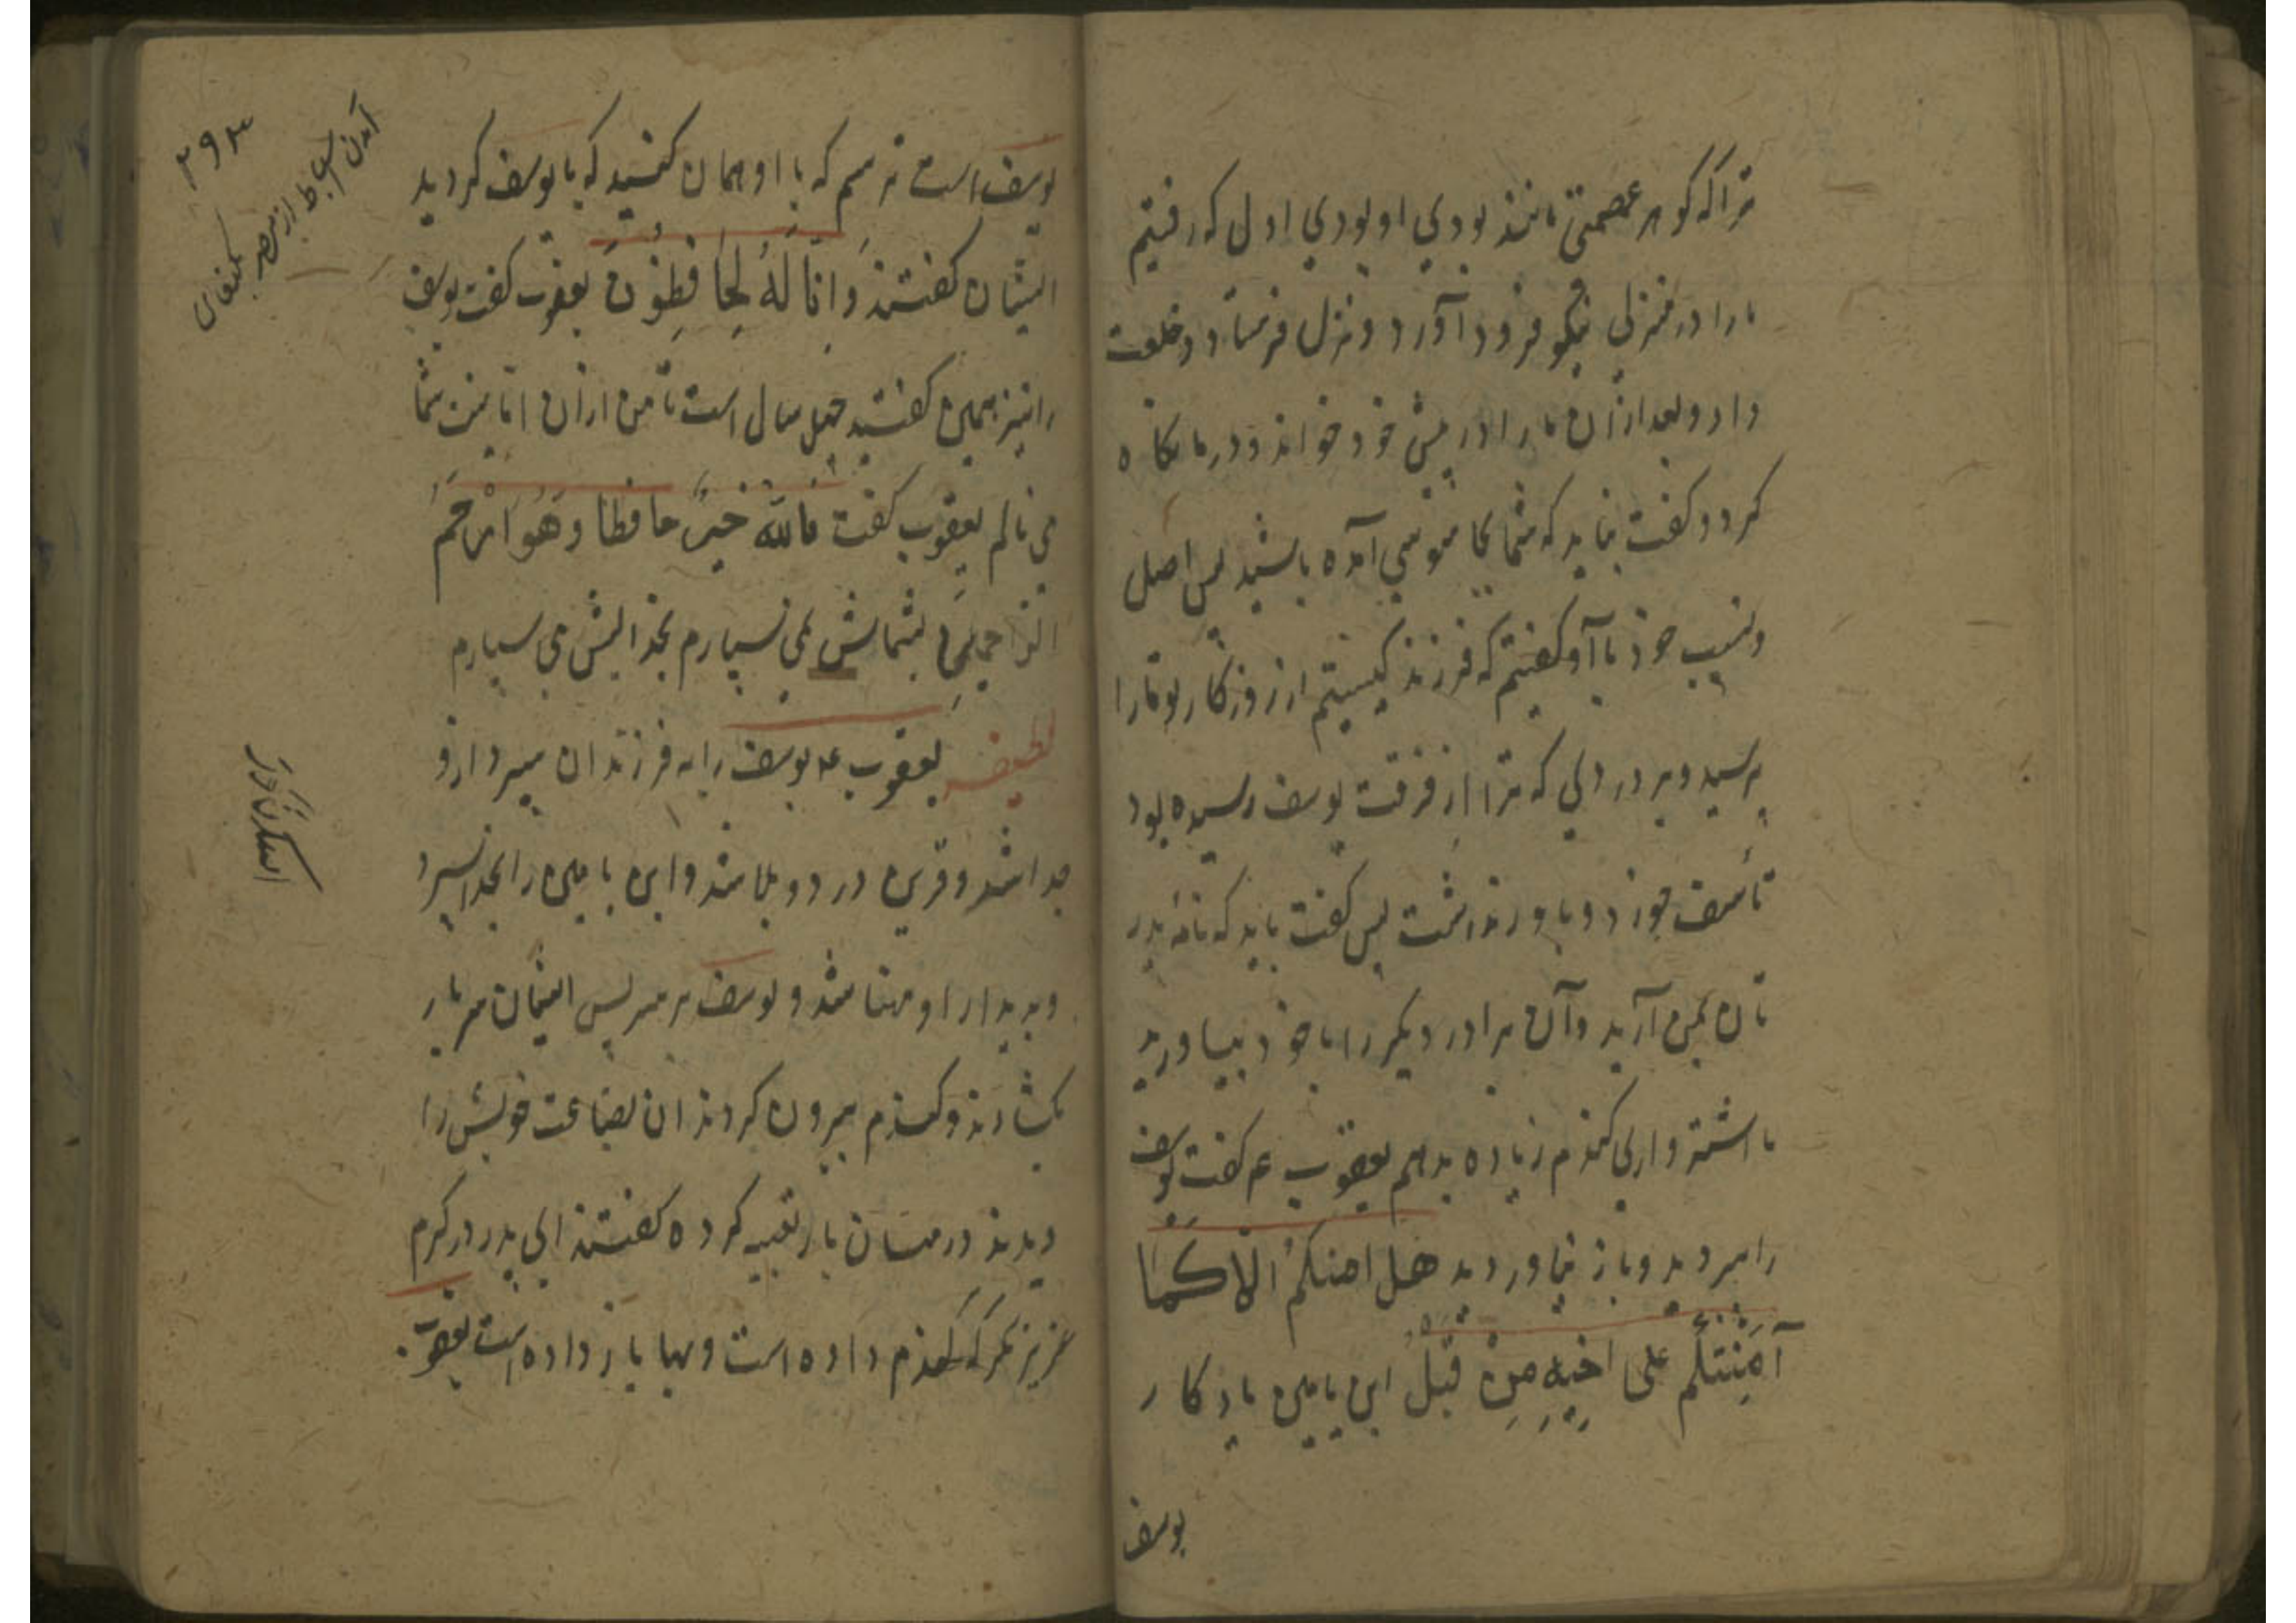 ترا که گوهر عصمتی مانند بودی او بودی اول که رفتیم
ما را در منزلی نیکو فرود آورد و نزل فرستاد و خلعت
داد و بعد از آن ما را در پیش خود خواند و در ما نگاه
کرد و گفت نباید که شما بجاسوسی آمده باشید پس اصل
و نسب خود با او گفتیم که فرزند کیستیم از روزگار تو ما را
پرسید و بر دردی که ترا از فرقت یوسف رسیده بود
تأسف خورد و باور نداشت پس گفت باید که نامۀ پدر
تان بمن آرید و آن برادر دیگر را با خود بیاورید
تا اشتر واری گندم زیاده بدهم یعقوب ع گفت یوسف
را بردید و باز نیاوردید هل امنکم الا کما
آمِنتکُم علی اخیه مِن قبلُ ابن یامین یادگار
یوسف
۲۹۴
آمدن اسباط از مصر بکنعان
یوسف است ترسم که با او همان کنید که با یوسف کردید
ایشان گفتند وَانّا لَهُ لَحافِظُونَ یعقوب گفت یوسف
را نیز همین گفتید چهل سال است تا من از آن شما
می نالم یعقوب گفت فاللّه خیرٌ حافظا وهُوَ ارْحَمُ
الرّاحمینَ بشماش نمی سپارم بخدایش می سپارم
لطیفه یعقوب عم یوسف را به فرزندان سپرد ازو
جدا شد و قرین درد و بلا شد و ابن یامین را بخدا سپرد
و بدیدار او مهنا شد و یوسف بر سر پس ایشان سر بار
بگشادند و گندم بیرون کردند آن بضاعت خویش را
دیدند در میان بار تعبیه کرده گفتند ای پدر در کرم
عزیز نگر که گندم داده است و بها باز داده است یعقوب